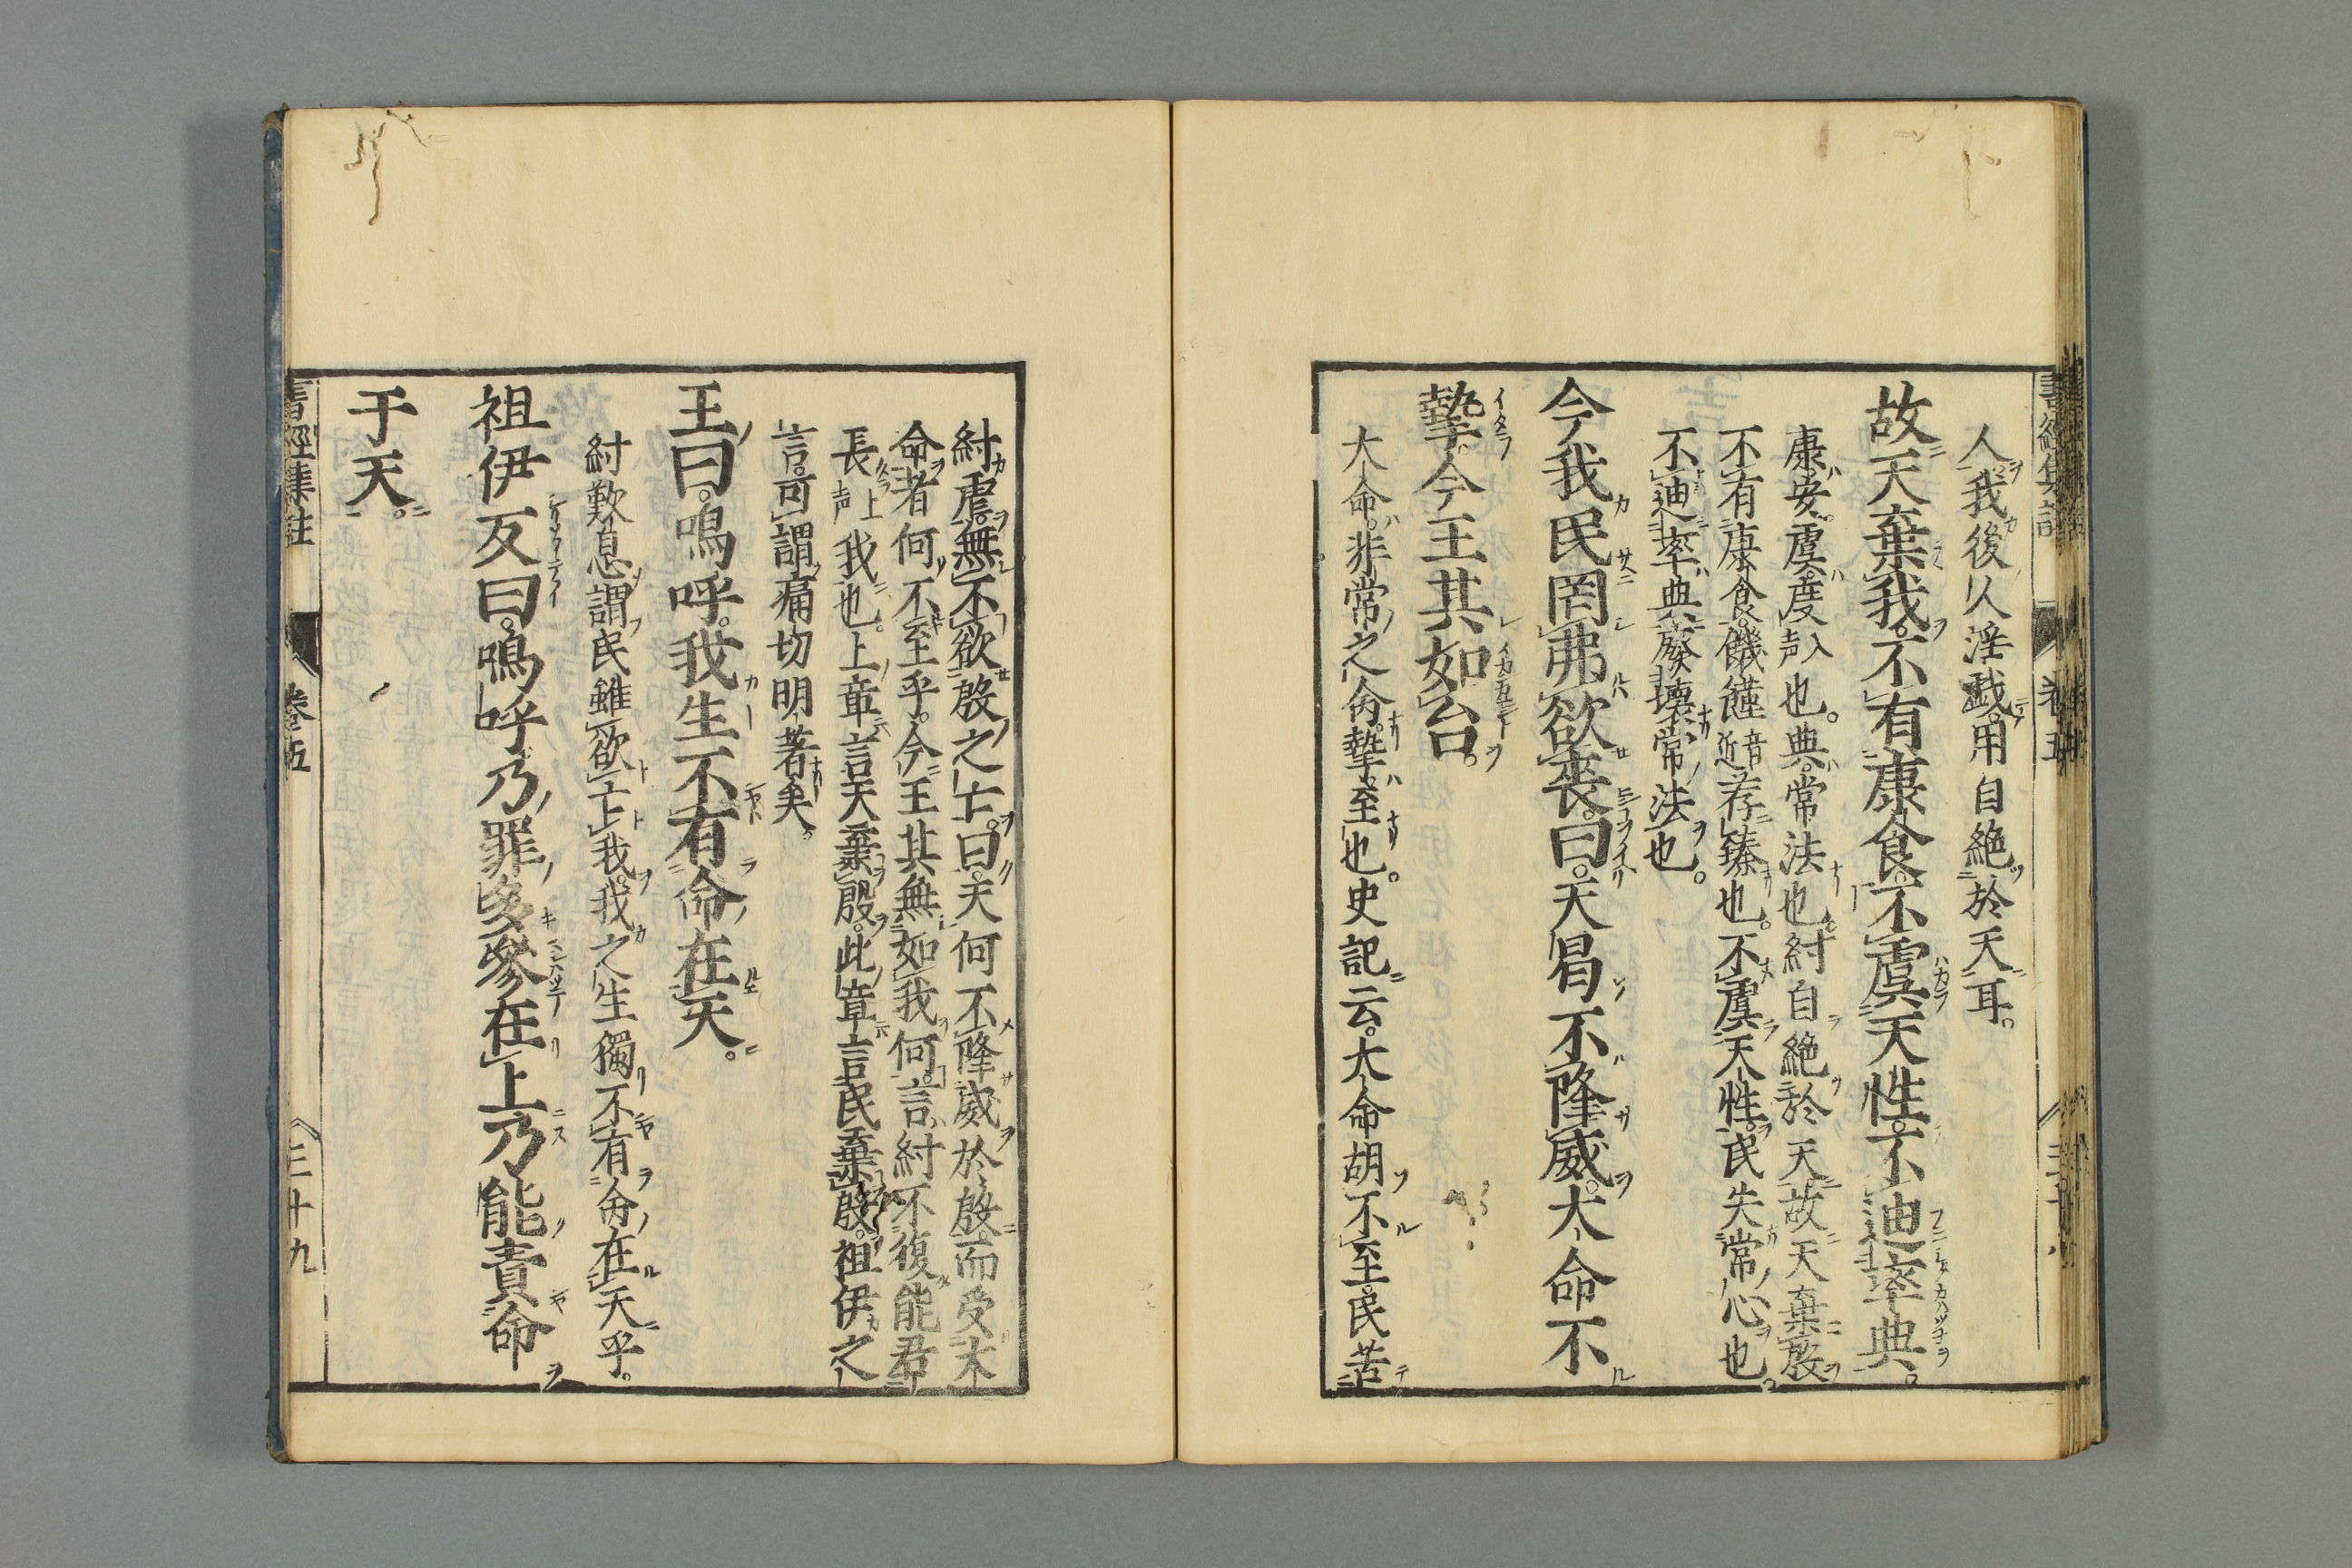 人我後人淫戲用自絕於天耳。
故天棄我。不有康食。不虞天性。不迪率典。
康安。虞度入声也。典常法也紂自絕於天故天棄殷
不有康食。饑饉音近荐臻也。不虞天性。民失常心也。
不迪率典廢壞常法也。
今我民罔弗欲喪。曰。天曷不降威。大命不
摯。今王其如台。
大命。非常之命。摯。至也。史記云。大命胡不至。民苦
紂虐。無不欲殷之亡。曰。天何不降威於殷。而受大
命者何不至乎。今王其無如我何。言紂不復能君
長上声我也。上章言天棄殷。此章言民棄殷。祖伊之
言。可謂痛切明著矣。
王曰。嗚呼。我生不有命在天。
紂歎息謂民雖欲亡我。我之生獨不有命在天乎。
祖伊反曰。嗚呼乃罪多參在上乃能責命
于天。
書經集註 卷五 三十九